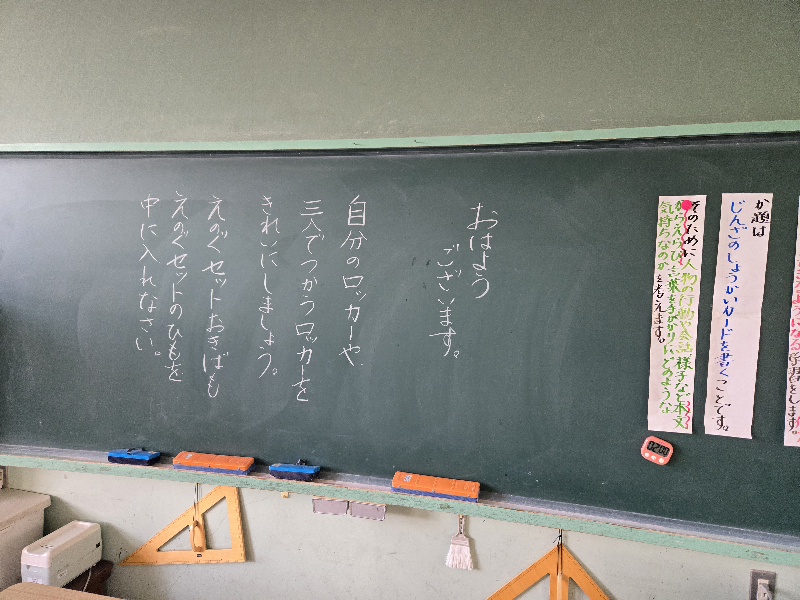 か題は
じんぶつのしょうかいカードを書くことです。
そのために人物の行動や会話、様子など本文
からえらび、言葉を手がかりに、どのような
気持ちなのかを考えます。
おはよう
ございます。
自分のロッカーや
三人でつかうロッカーを
きれいにしましょう。
えのぐセットおきばも
えのぐセットのひもを
中に入れなさい。